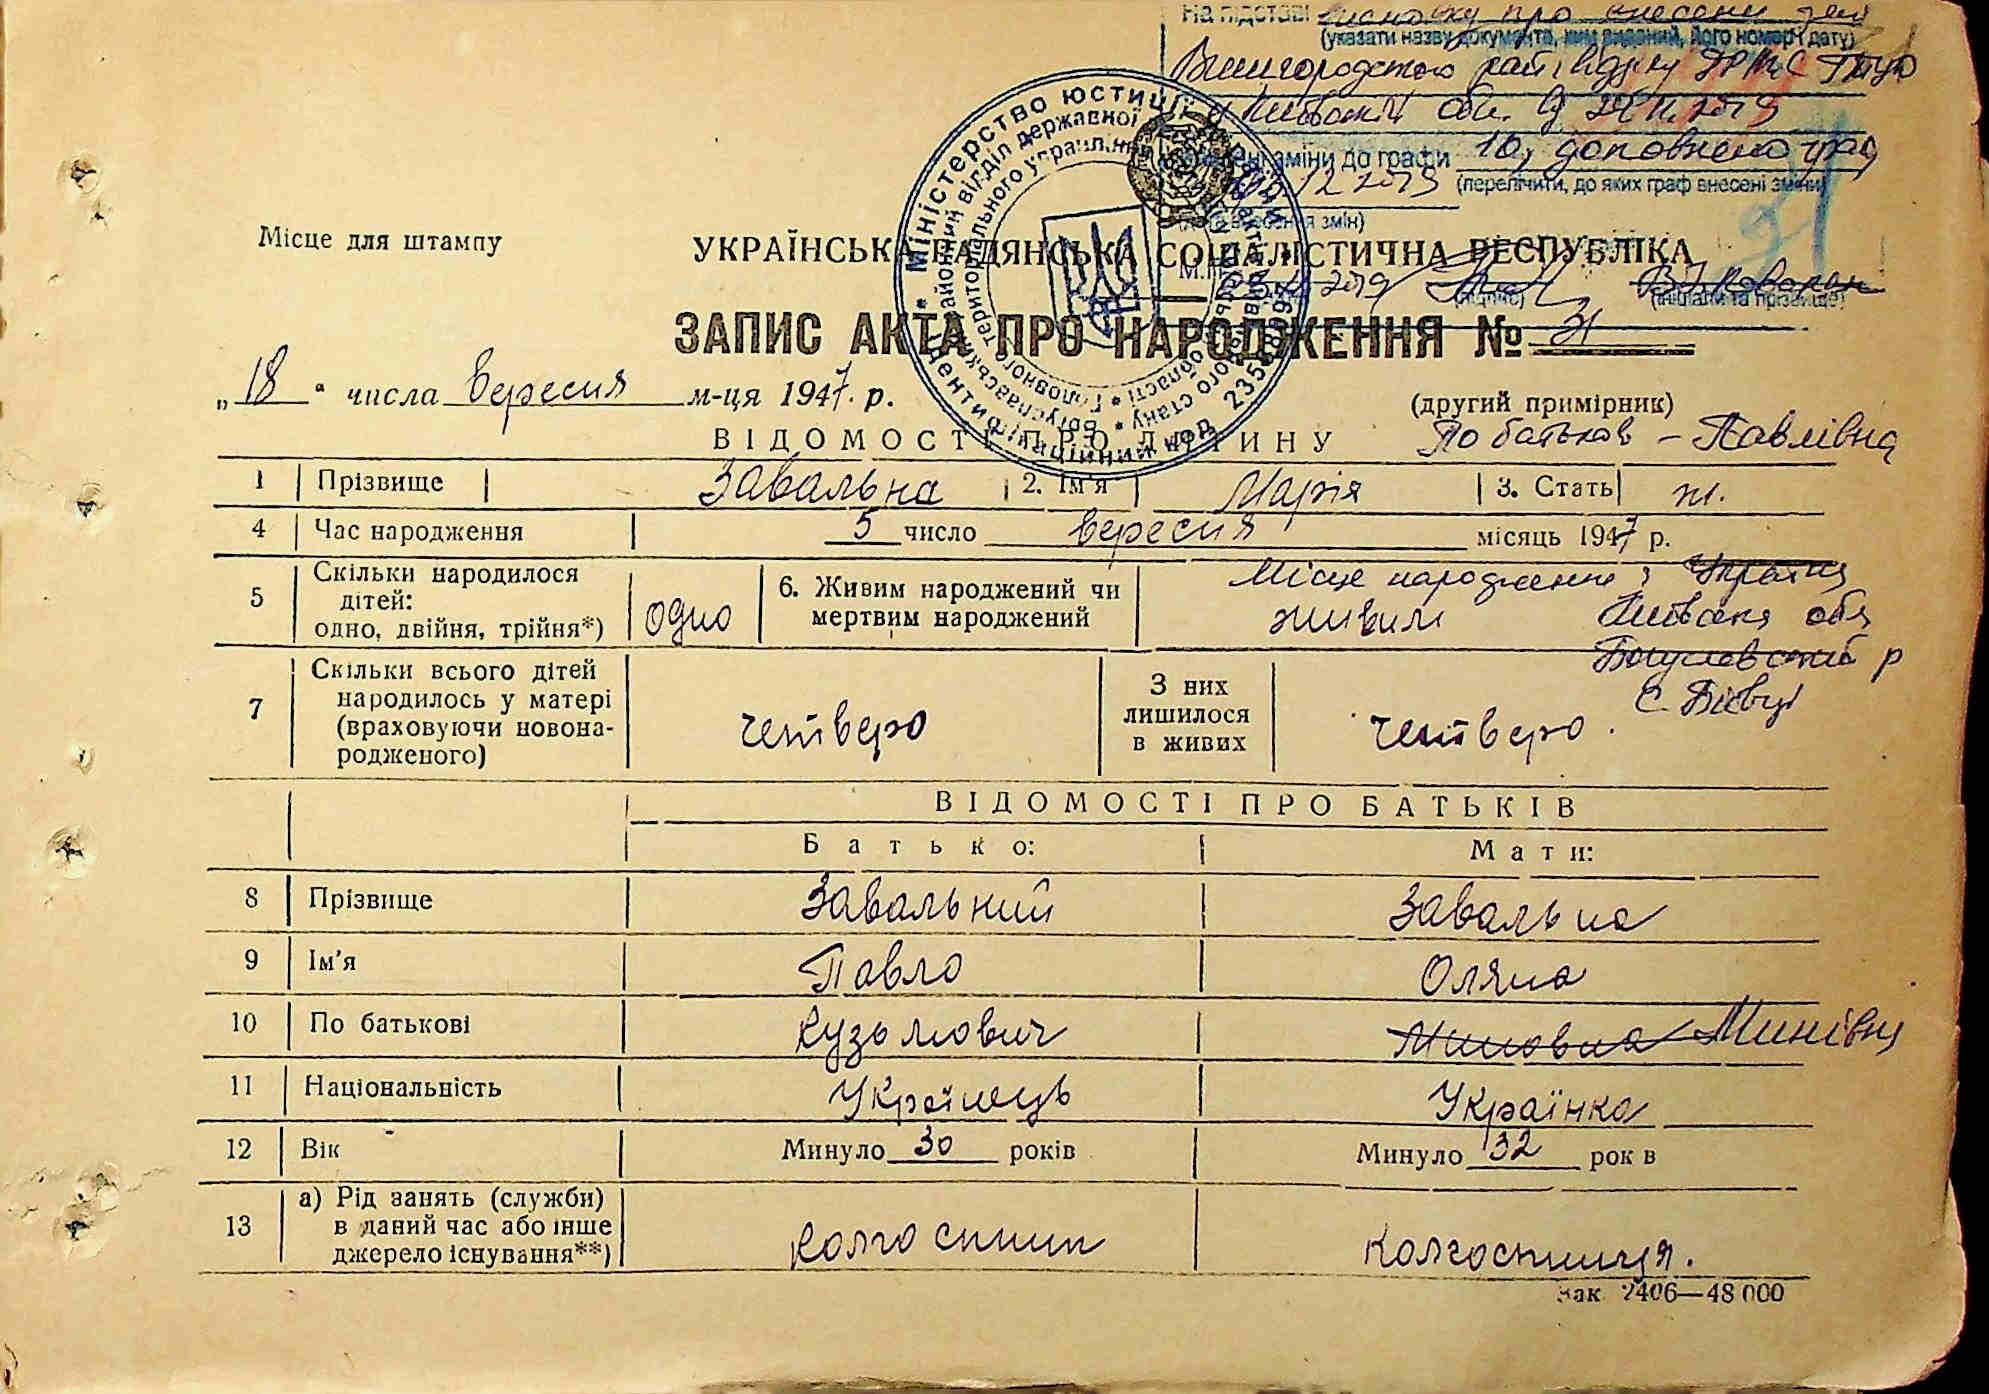 На підставі висновку про внесення змі
(указати назву документа, ким виданий, його номер і дату)
Вишгородського рай. відділу ДРАЦС ГТУЮ
у Київській обл. від 29.11.2019
зміни до графи 10, доповнено граф
12 2019 (перелічити, до яких граф внесені зміни)
(дата внесення змін)
Місце для штампу
УКРАЇНСЬКА РАДЯНСЬКА СОЦІАЛІСТИЧНА РЕСПУБЛІКА
М.П.
2019
(підпис) (ініціали та прізвище)
ЗАПИС АКТА ПРО НАРОДЖЕННЯ № 31
„18" числа вересня м-ця 1947. р.
(другий примірник)
По батькові – Павлівна
ВІДОМОСТІ ПРО ДИТИНУ
1 Прізвище Завальна 2. Ім'я Марія 3. Стать ж.
4 Час народження 5 число вересня місяць 1947 р.
5 Скільки народилося дітей: одно, двійня, трійня*) одно 6. Живим народжений чи мертвим народжений живим
Місце народження: Україна
Київська обл
Богуславський р
с.
7 Скільки всього дітей народилось у матері (враховуючи новонародженого) четверо З них лишилося в живих четверо.
ВІДОМОСТІ ПРО БАТЬКІВ
Батько: Мати:
8 Прізвище Завальний Завальна
9 Ім'я Павло Оляна
10 По батькові Кузьмович Миновна Минівна
11 Національність Українець Українка
12 Вік Минуло 30 років Минуло 32 рок в
13 а) Рід занять (служби) в даний час або інше джерело існування**) колгоспник колгоспниця.
Зак. 2406—48 000